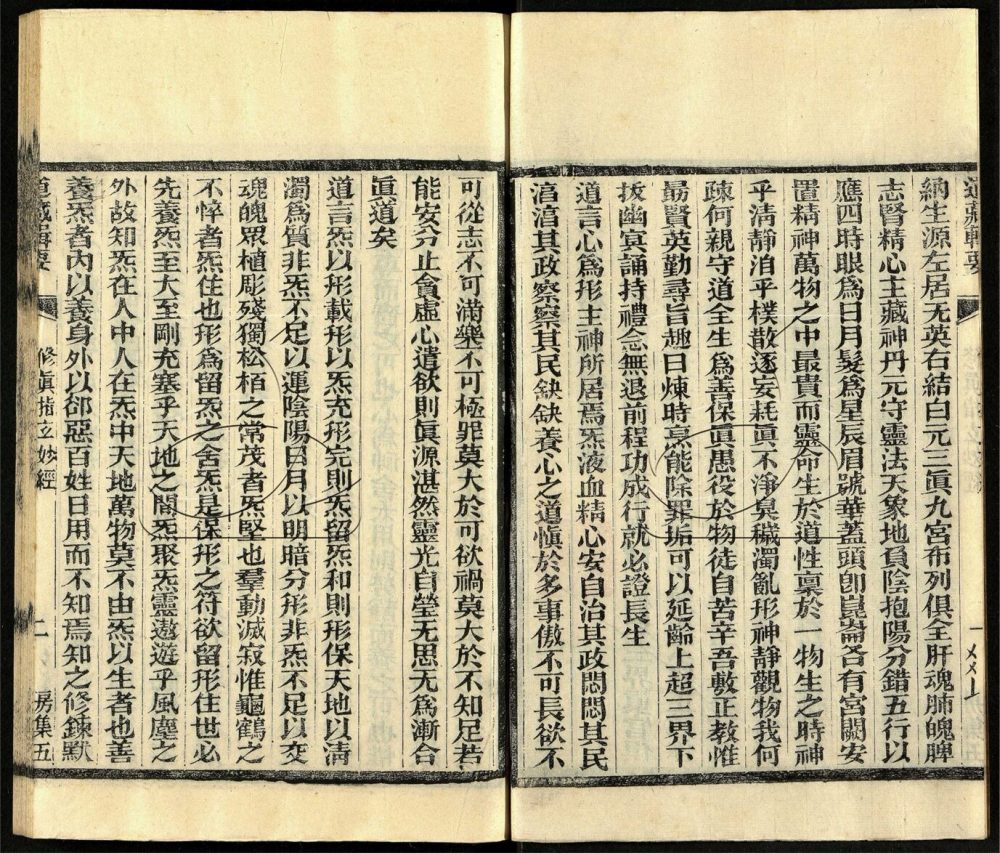 道藏輯要
納生源左居无英右結白元三眞九宮布列俱全肝魂肺魄脾
志腎精心主藏神丹元守靈法天象地負陰抱陽分錯五行以
應四時眼爲日月髮爲星辰眉號華蓋頭卽崑崙各有宮闕安
置精神萬物之中最貴而靈命生於道性禀於一物生之時神
乎清靜洎乎樸散逐妄耗眞不淨臭穢濁亂形神靜觀物我何
疎何親守道全生爲善保眞愚役於物徒自苦辛吾敷正教惟
勗賢英勤尋旨趣日煉時烹能除罪垢可以延齡上超三界下
拔幽冥誦持禮念無退前程功成行就必證長生
道言心爲形主神所居焉炁液血精心安自治其政悶悶其民
湻湻其政察察其民缺缺養心之道愼於多事傲不可長欲不
可從志不可滿樂不可極罪莫大於可欲禍莫大於不知足若
能安分止貪虛心遣欲則眞源湛然靈光自瑩无思无爲漸合
眞道矣
道言炁以形載形以炁充形完則炁留炁和則形保天地以清
濁爲質非炁不足以運陰陽日月以明暗分形非炁不足以交
魂魄眾植彫殘獨松栢之常茂者炁堅也羣動滅寂惟龜鶴之
不悴者炁住也形爲留炁之舍炁是保形之符欲留形住世必
先養炁至大至剛充塞乎天地之閒炁聚炁靈遨遊乎風塵之
外故知炁在人中人在炁中天地萬物莫不由炁以生者也善
養炁者內以養身外以郤惡百姓日用而不知焉知之修鍊默
道藏輯要
修眞指玄妙經
二
房集五